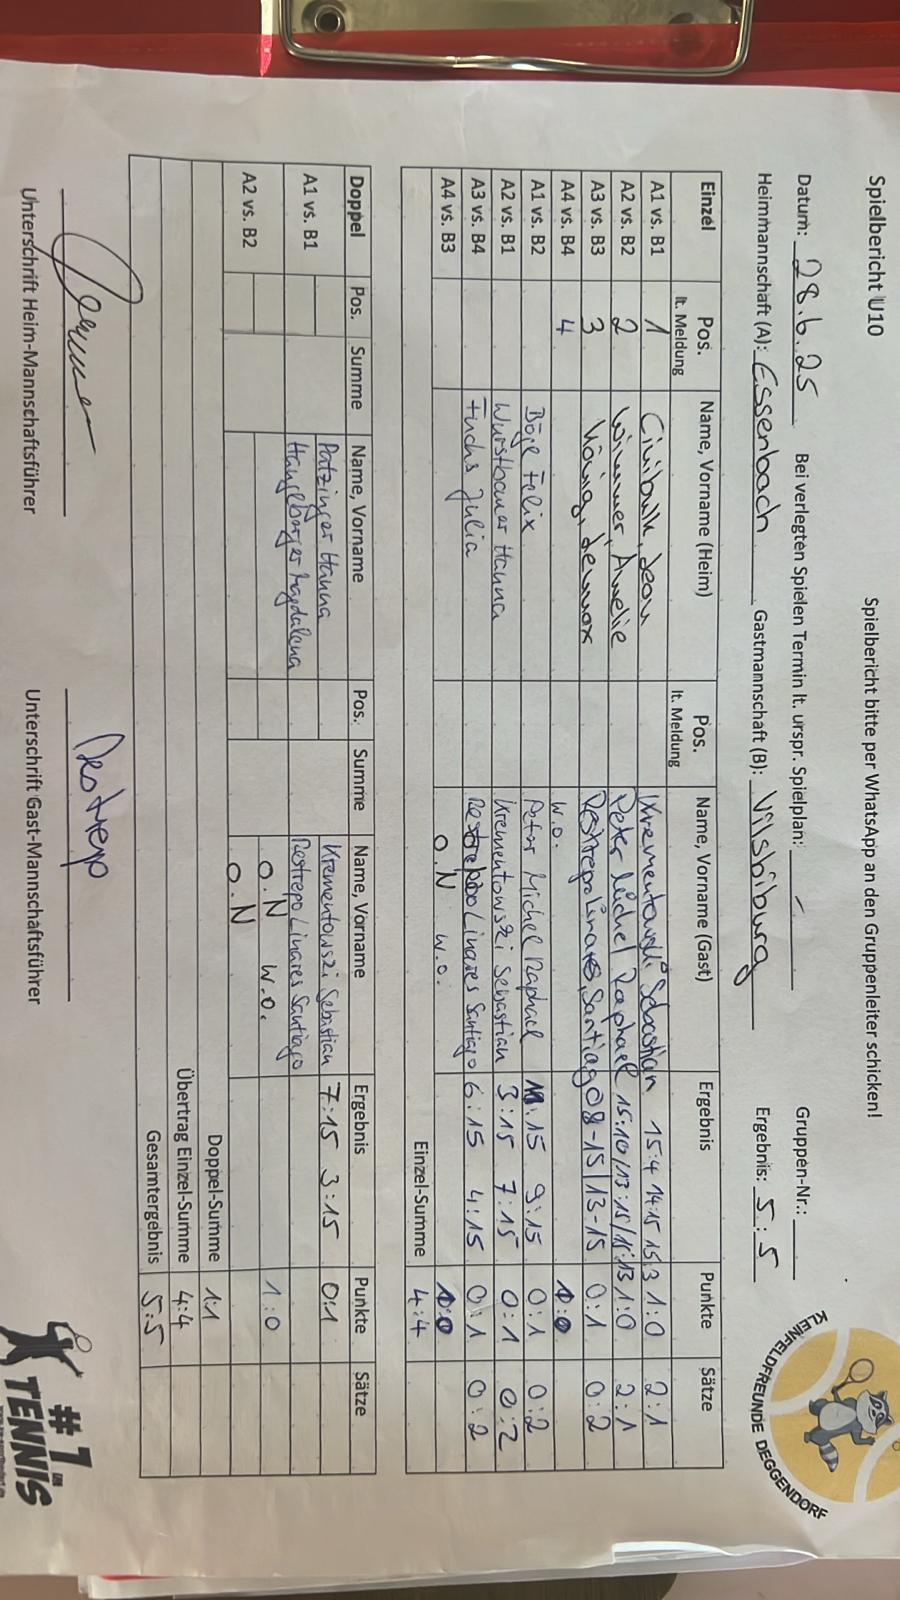 Spielbericht U10 Spielbericht bitte per WhatsApp an den Gruppenleiter schicken!
Datum: 28.6.25 Bei verlegten Spielen Termin lt. urspr. Spielplan: - Gruppen-Nr.:
Heimmannschaft (A): Essenbach Gastmannschaft (B): Vilsbiburg Ergebnis: 5:5
KLEINFELDFREUNDE DEGGENDORF
Einzel Pos. lt. Meldung Name, Vorname (Heim) Pos. lt. Meldung Name, Vorname (Gast) Ergebnis Punkte Sätze
A1 vs. B1 1 Sebastian 15:4 14:15 15:3 1:0 2:1
A2 vs. B2 2 Wimmer, Amelie Peter Michel Raphael 15:10/13:15/15:13 1:0 2:1
A3 vs. B3 3 Restrepo Linares, Santiago 8-15/13-15 0:1 0:2
A4 vs. B4 4 w.o. 1:0
A1 vs. B2 Böge Felix Peter Michel Raphael 11:15 9:15 0:1 0:2
A2 vs. B1 Wurstbauer Hanna Krementowski Sebastian 3:15 7:15 0:1 0:2
A3 vs. B4 Fuchs Julia Restrepo Linares Santiago 6:15 4:15 0:1 0:2
A4 vs. B3 O.N w.o. 1:0
Einzel-Summe 4:4
Doppel Pos. Summe Name, Vorname Pos. Summe Name, Vorname Ergebnis Punkte Sätze
A1 vs. B1 Patzinger Hanna Krementowszi Sebastian 7:15 3:15 0:1
Magdalena Restrepo Linares Santiago
A2 vs. B2 O.N w.o. 1:0
O.N
Doppel-Summe 1:1
Übertrag Einzel-Summe 4:4
Gesamtergebnis 5:5
Restrepo
Unterschrift Heim-Mannschaftsführer Unterschrift Gast-Mannschaftsführer
#1 IN TENNIS